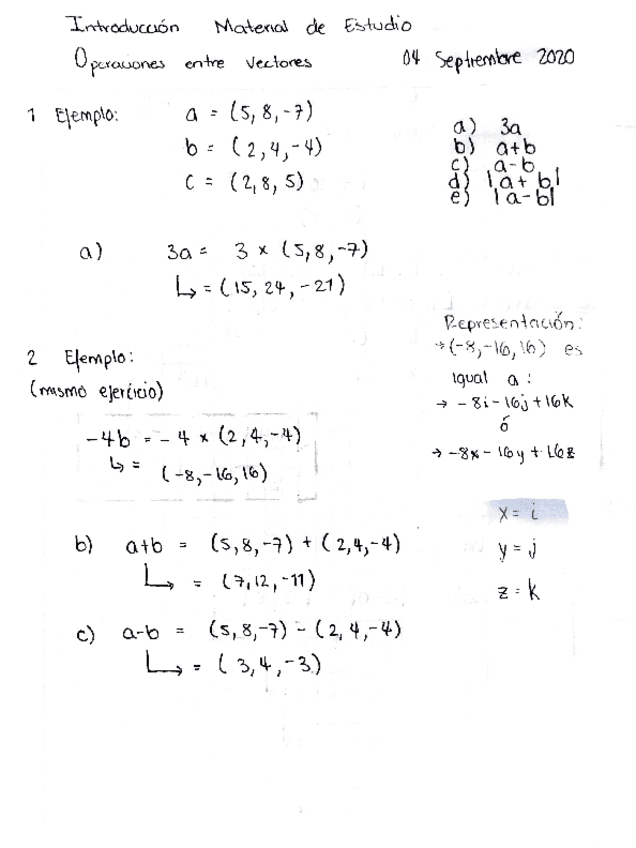 Introducción Material de Estudio
Operaciones entre vectores 04 Septiembre 2020
1 Ejemplo: a = (5, 8, -7)
b = (2, 4, -4)
c = (2, 8, 5)
a) 3a
b) a+b
c) a-b
d) |a + b|
e) |a-b|
a) 3a = 3 × (5, 8, -7)
↳ = (15, 24, -21)
Representación:
→ (-8, -16, 16) es
igual a:
→ -8i - 16j + 16k
ó
→ -8x - 16y + 16z
2 Ejemplo:
(mismo ejercicio)
-4b = -4 × (2, 4, -4)
↳ = (-8, -16, 16)
x = i
y = j
z = k
b) a+b = (5, 8, -7) + (2, 4, -4)
↳ = (7, 12, -11)
c) a-b = (5, 8, -7) - (2, 4, -4)
↳ = (3, 4, -3)